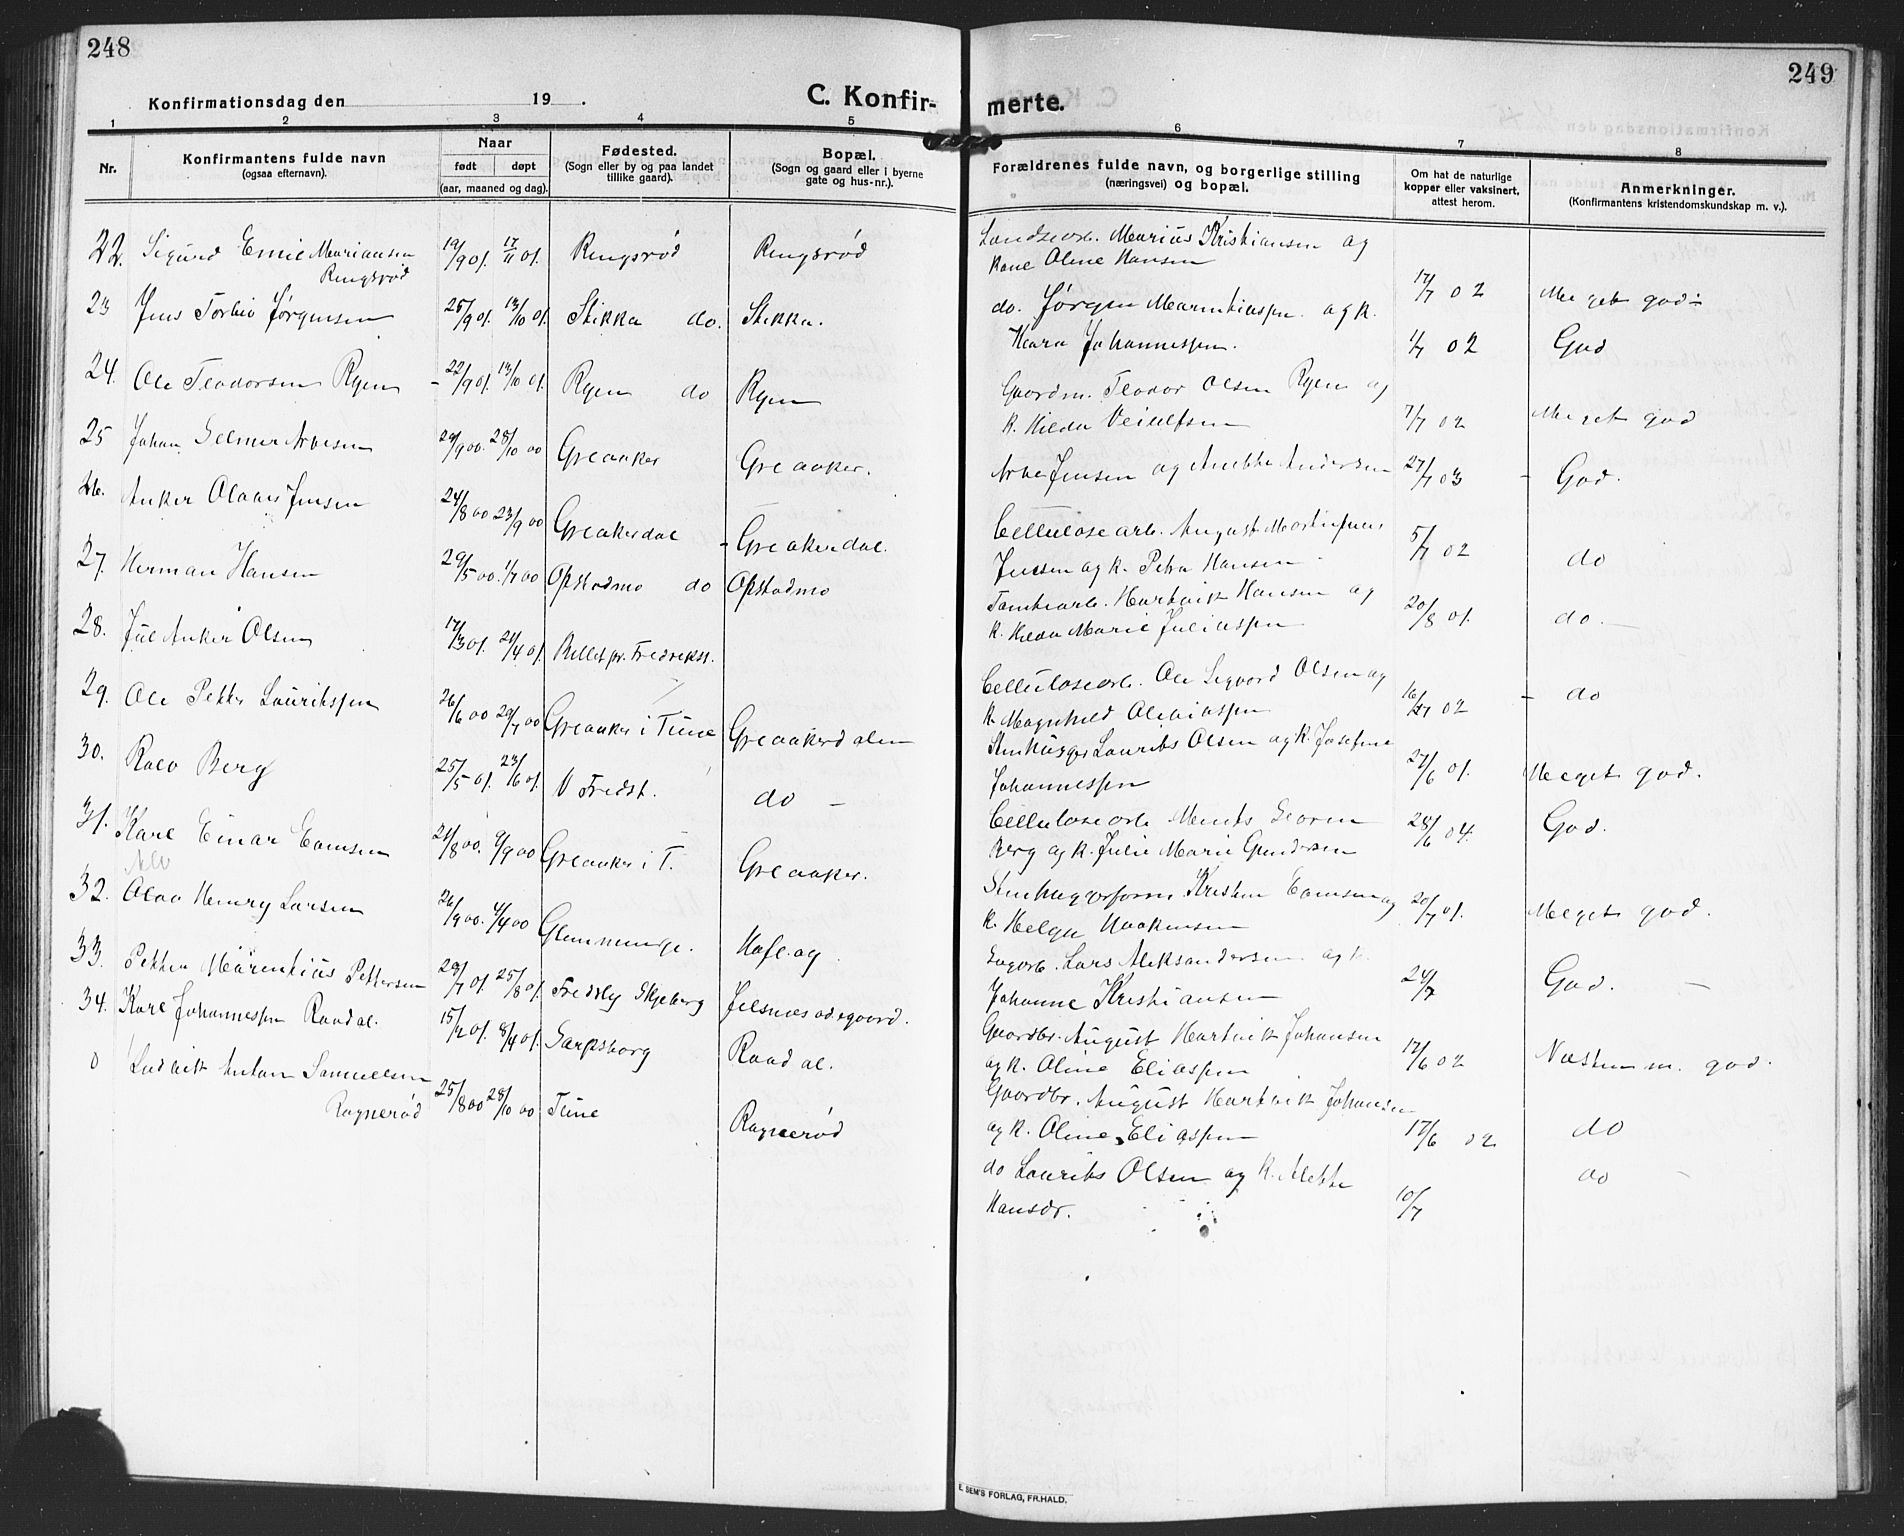 248
Konfirmationsdag den 19 .
C. Konfir-
1 2 3 4 5
Nr. Konfirmantens fulde navn (ogsaa efternavn).
Naar
født døpt
(aar, maaned og dag).
Fødested.
(Sogn eller by og paa landet
tillike gaard).
Bopæl.
(Sogn og gaard eller i byerne
gate og hus-nr.).
22. Sigurd Emil Mariausen 19/9 01. 17/11 01. Ringsrød Ringsrød
Ringsrød
23 Jens Torleio Jørgensen 25/9 01. 13/10 01. Stikka do. Stikka.
24. Ole Teodorsen Ryen 22/9 01. 13/10 01. Ryen do Ryen
25 Johan Selmer Arvesen 29/9 00. 28/10 00 Greaaker Greaaker.
26. Anker Olaves Jensen 24/8 00 23/9 00 Greakerdal Greakerdal.
27. Herman Hansen 29/5 00. 1/7 00 Opstadmo do Opstadmo
28. Jul Anker Olsen 17/3 01. 21/4 01. Fredrikst.
29. Ole Petter Lauritssen 26/6 00 29/7 00 Greaaker i Tune Greaakerdalen
30. Rolv Berg 25/5 01. 23/6 01. V Fredst. do
31. Karl Einar Evensen 21/8 00. 9/9 00 Greaaker i T. Greaaker.
32. Olav Henry Larsen 26/9 00. 4/4 00 Glemminge. Hafslag
33. Petter Marentius Pettersen 29/7 01. 25/8 01. Skjeberg
34. Karl Johannessen Raadal. 15/2 01. 8/4 01. Sarpsborg Raadal.
0 Ludvik Anton Samuelsen 25/8 00 28/10 00 Tune Ragnerød
Ragnerød
249
merte.
6 7 8
Forældrenes fulde navn, og borgerlige stilling
(næringsvei) og bopæl.
Om hat de naturlige
kopper eller vaksinert,
attest herom.
Anmerkninger.
(Konfirmantens kristendomskundskap m. v.).
Marius Kristiansen og
Kone Oline Hansen 17/7 02 Meget god
do. Jørgen Marentiussen og k.
Kara Johannessen. 1/7 02 God
Gaardm. Teodor Olsen Ryen og
k. Hilda Veiulfsen 7/7 02 Meget god
Arve Jensen og Anette Andersen 27/7 03 God.
Cellulosearb. August Martinsen
Jensen og k. Petra Hansen 5/7 02 do
Tomtearb. Hartvik Hansen og
k. Hilda Marie Juliussen 20/8 01. do.
Cellulosearb. Ole Sigvard Olsen og
k. Magnhild Oliviussen 16/7 02 do
Stenhugger Laurits Olsen og k. Josefine
Johannessen 27/6 01. Meget god.
Cellulosearb Georn
Berg og k. Julie Marie Gundersen 28/6 04. God.
Stenhuggerform Kristen Evensen og
k. Helga Haakensen 20/7 01. Meget god.
Sagarb. Lars Aleksandersen og k.
Johanne Kristiansen 24/7 God.
Gaardbr. August Hartvik Johansen
og k. Oline Eliassen 17/6 02 Næsten m. god.
Gaardbr. August Hartvik Johansen
og k. Oline Eliassen 17/6 02 do
do Laurits Olsen og k. Mette
Hansdr. 10/7 do
E. SEM'S FORLAG, FR.HALD.